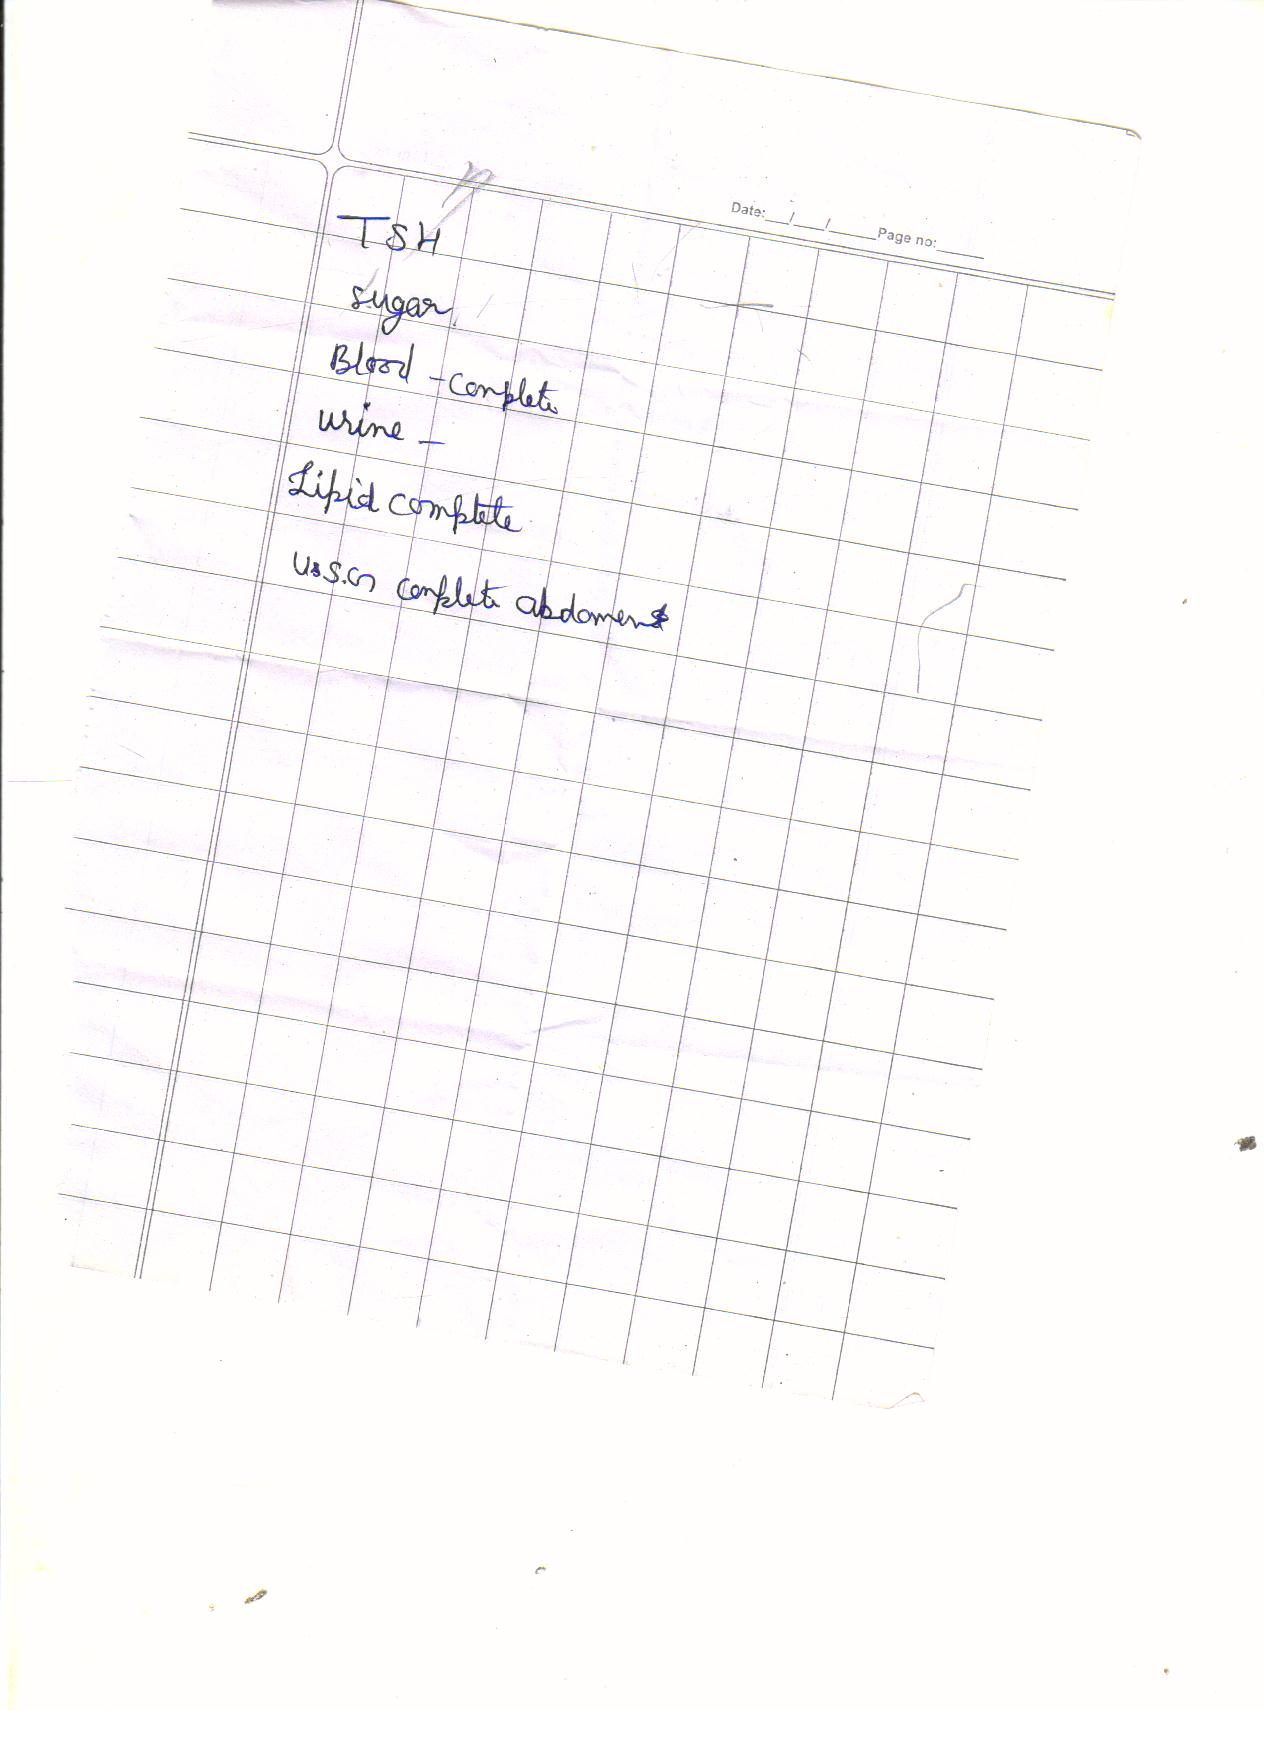 Date:__/__/____Page no:_____
TSH
sugar.
Blood - complete
urine -
Lipid complete
U.S.G complete abdomen